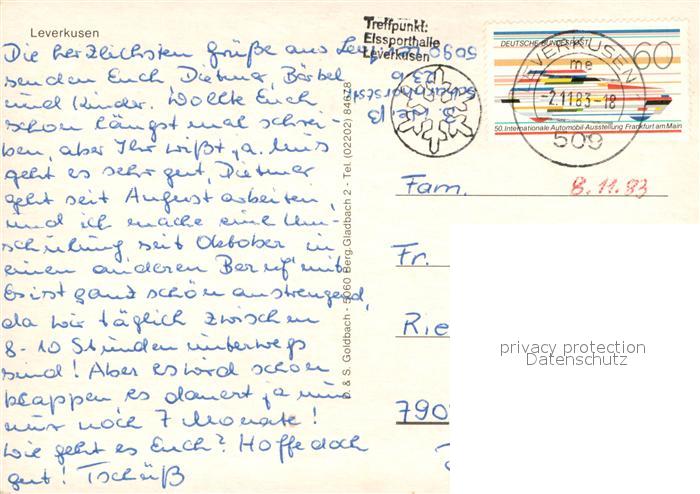 Leverkusen
Die herzlichsten Grüße aus Lev.
senden Euch Dietmar, Bärbel
und Kinder. Wollte Euch
schon längst mal schrei-
ben, aber Ihr wißt ja. Uns
geht es sehr gut, Dietmar
geht seit August arbeiten,
und ich mache eine Um-
schulung seit Oktober in
einen anderen Beruf mit.
Es ist ganz schön anstrengend,
da wir täglich zwischen
8-10 Stunden unterwegs
sind! Aber es wird schon
klappen es dauert ja nun
nur noch 7 Monate!
Wie geht es Euch? Hoffe doch
gut! Tschüß
D. & S. Goldbach - 5060 Berg. Gladbach 2 - Tel. (02202) 84678
Treffpunkt:
Eissporthalle
Leverkusen
DEUTSCHE BUNDESPOST 60
50. Internationale Automobil-Ausstellung Frankfurt am Main
LEVERKUSEN
me
-2.11.83-18
509
8.11.83
Fam.
Fr.
Rie
790
privacy protection
Datenschutz